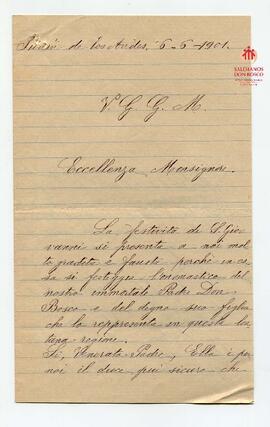 Junín de los Andes, 6-6-1901.
SALESIANOS
DON BOSCO
V. G. G. M.
Eccellenza Monsignore.
La festività di S. Gio-
vanni si presenta a noi mol-
to gradita e fausta perchè in es-
sa si festeggia l'onomastico del
nostro immortale Padre Don
Bosco e del degno suo figlio
che lo rappresenta in questa lon-
tana regione.
Sì, Venerato Padre, Ella è per
noi il duce più sicuro che